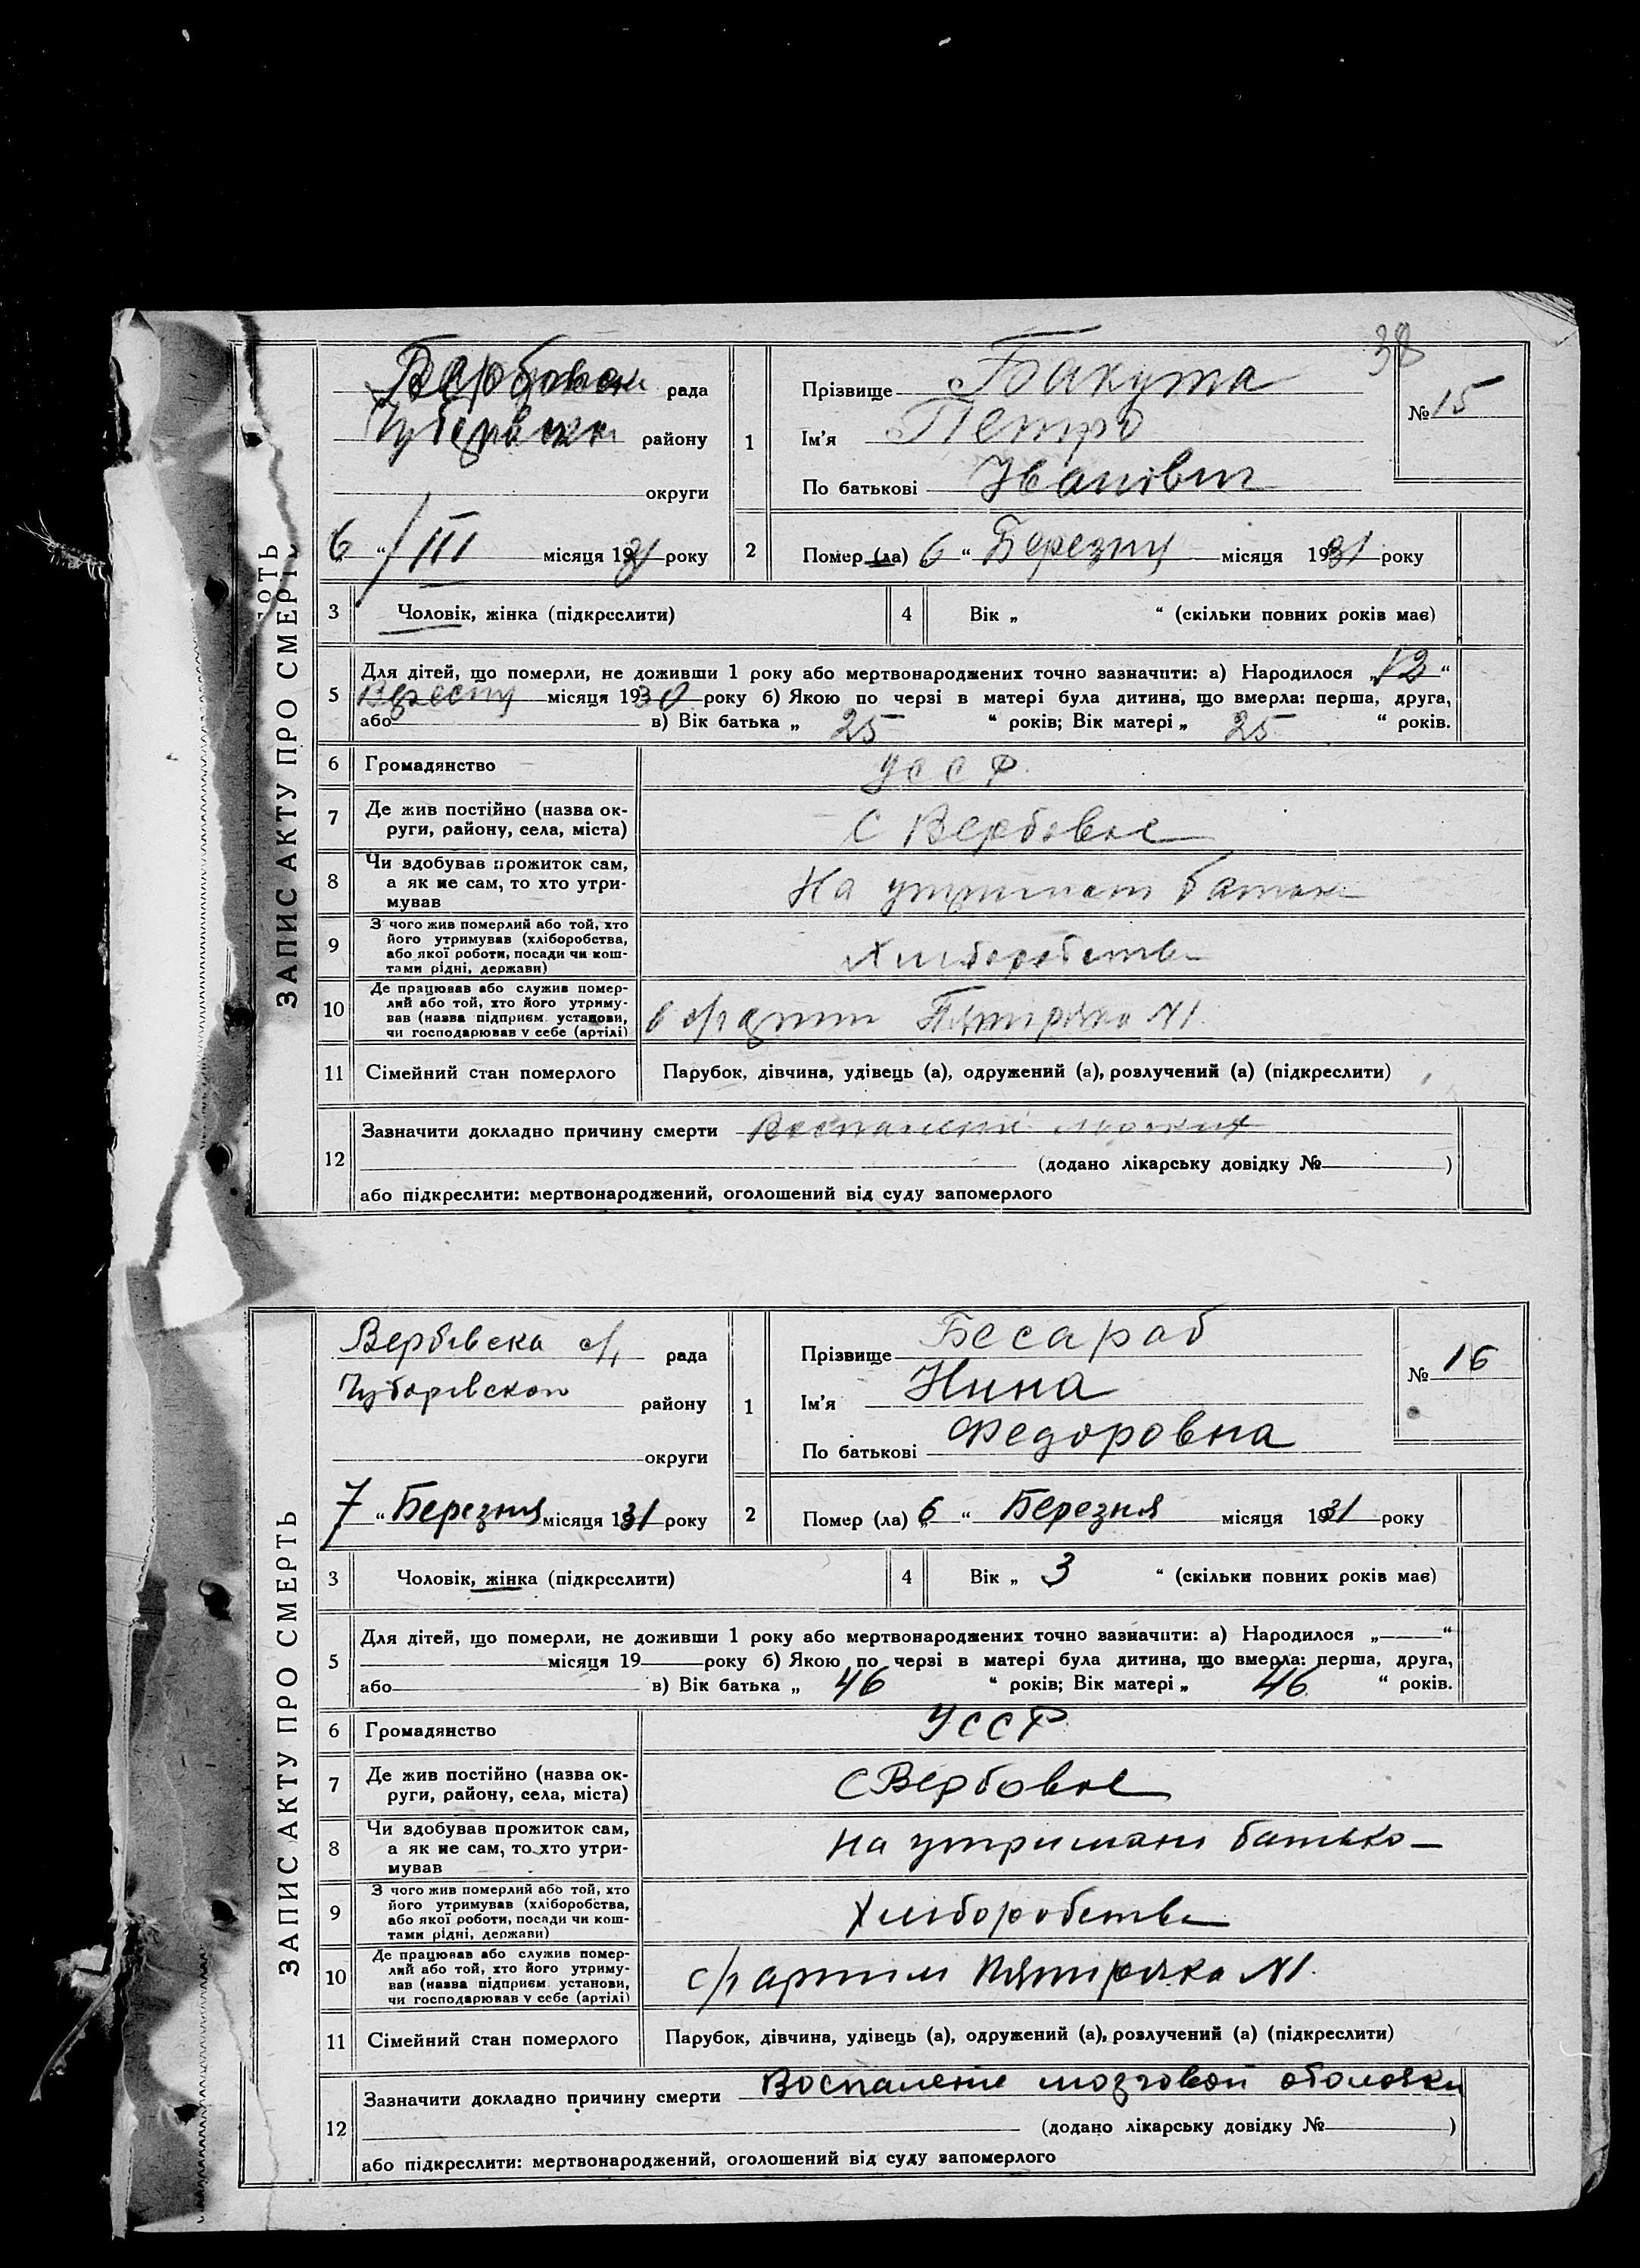 38
ЗАПИС АКТУ ПРО СМЕРТЬ
Вербовск рада
Чубарівськ району
округи
6 “ / III місяця 1931 року
1
Прізвище Бакута
Ім'я Петро
По батькові Іванович
№ 15
2 Помер (ла) 6 “ Березня місяця 1931 року
3 Чоловік, жінка (підкреслити)
4 Вік „ “ (скільки повних років має)
5 Для дітей, що померли, не доживши 1 року або мертвонароджених точно зазначити: а) Народилося „ 13 “
місяця 1930 року б) Якою по черзі в матері була дитина, що вмерла: перша, друга,
або в) Вік батька „ 25 “ років; Вік матері „ 25 “ років.
6 Громадянство УССР
7 Де жив постійно (назва ок-
руги, району, села, міста) С Вербовое
8 Чи здобував прожиток сам,
а як не сам, то хто утри-
мував На утриман батьк
9 З чого жив померлий або той, хто
його утримував (хліборобства,
або якої роботи, посади чи кош-
тами рідні, держави) Хліборобство
10 Де працював або служив помер-
лий або той, хто його утриму-
вав (назва підприєм. установи,
чи господарював у себе (артілі) в с/г артіли Пятирічка №1.
11 Сімейний стан померлого Парубок, дівчина, удівець (а), одружений (а), розлучений (а) (підкреслити)
12 Зазначити докладно причину смерти Воспаление
(додано лікарську довідку № )
або підкреслити: мертвонароджений, оголошений від суду запомерлого
ЗАПИС АКТУ ПРО СМЕРТЬ
Вербівска с/, рада
Чубарівскои району
округи
7 “ Березня місяця 1931 року
1
Прізвище Бесараб
Ім'я Нина
По батькові Федоровна
№ 16
2 Помер (ла) „6 “ Березня місяця 1931 року
3 Чоловік, жінка (підкреслити)
4 Вік „ 3 “ (скільки повних років має)
5 Для дітей, що померли, не доживши 1 року або мертвонароджених точно зазначити: а) Народилося „ “
місяця 19 року б) Якою по черзі в матері була дитина, що вмерла: перша, друга,
або в) Вік батька „ 46 “ років; Вік матері „ 46 “ років.
6 Громадянство УССР
7 Де жив постійно (назва ок-
руги, району, села, міста) С Вербовое
8 Чи здобував прожиток сам,
а як не сам, то хто утри-
мував на утримані батько
9 З чого жив померлий або той, хто
його утримував (хліборобства,
або якої роботи, посади чи кош-
тами рідні, держави) Хліборобство
10 Де працював або служив помер-
лий або той, хто його утриму-
вав (назва підприєм. установи,
чи господарював у себе (артілі) с/г артіли Пятирічка №1.
11 Сімейний стан померлого Парубок, дівчина, удівець (а), одружений (а), розлучений (а) (підкреслити)
12 Зазначити докладно причину смерти Воспаление мозговой оболочки
(додано лікарську довідку № )
або підкреслити: мертвонароджений, оголошений від суду запомерлого